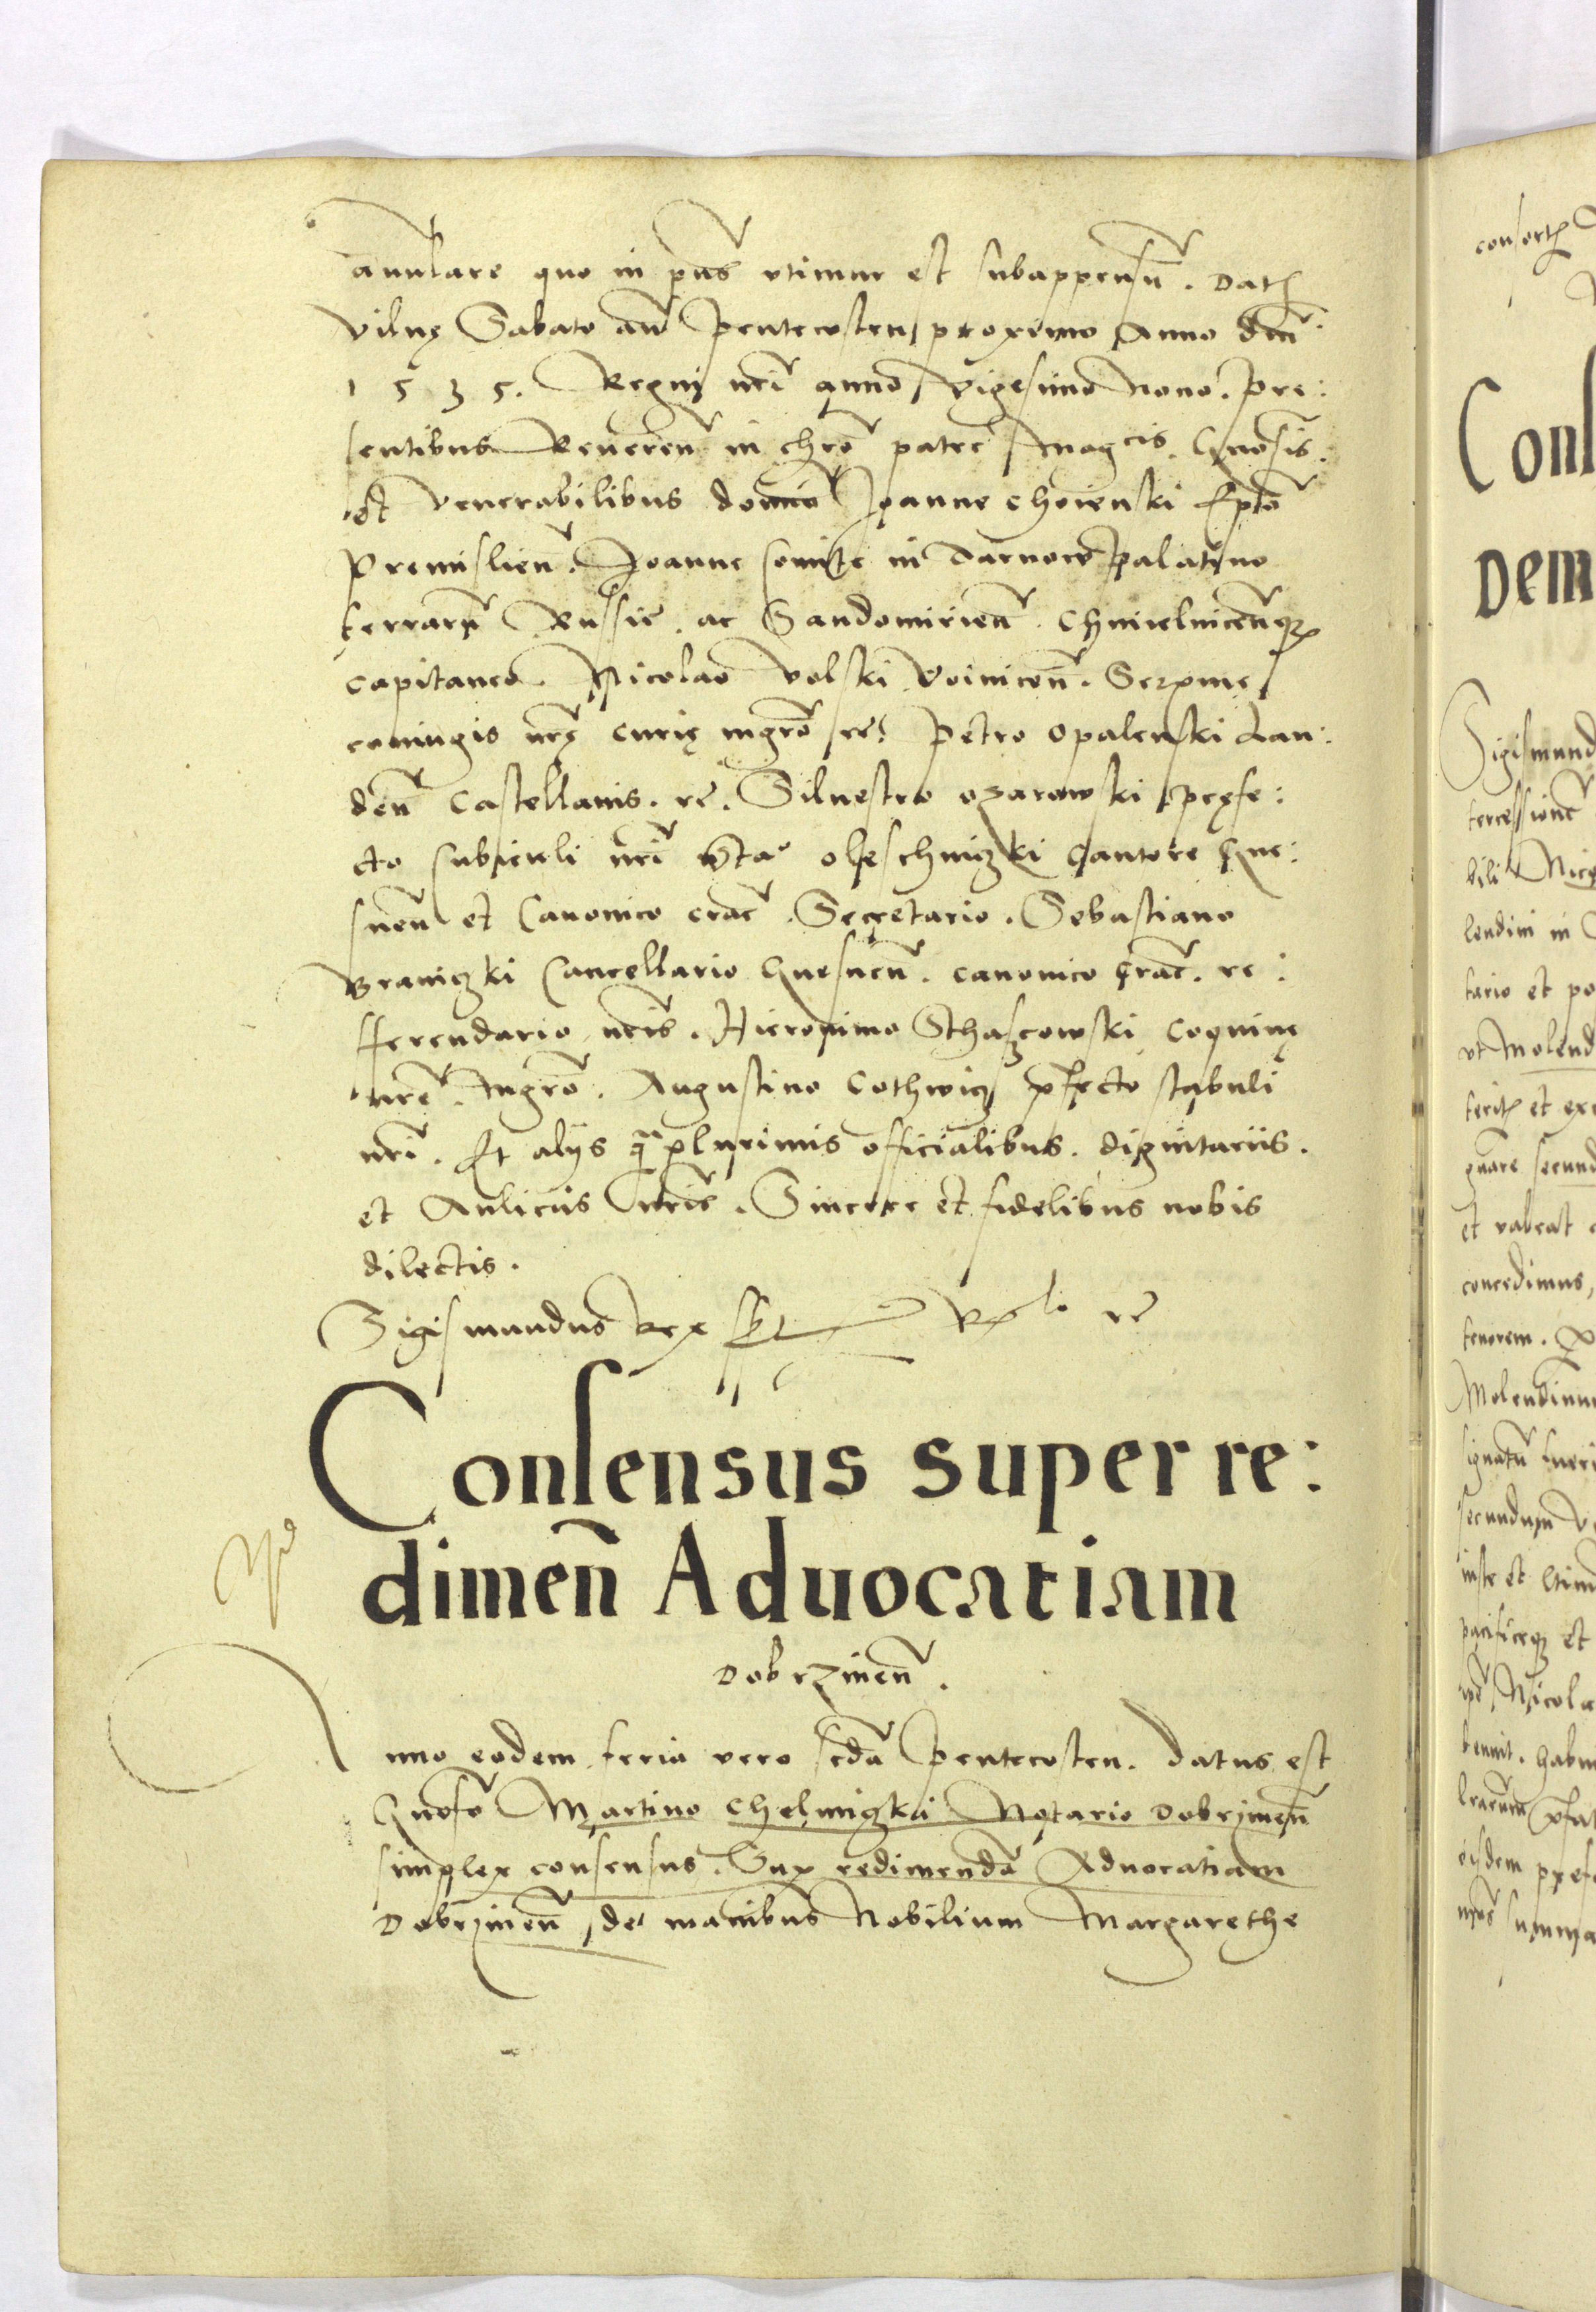 annulare quo in pñs vtimur est subappensũ. Datȝ
Vilnę Sabato añ Pentecosten proximo Anno dñi
1535. Regni nri anno Vigesimo Nono. Pre:
sentibus Reueren̄ in chro patre Magcis. Gnosis.
et Venerabilibus domino Joanne Choienski Epõ
Premislien̄. Joanne Comite in Tarnow Palatino
terrarũ Russie. ac Sandomirien̄. Chmielnicen̄qȝ
capitaneo. Nicolao Volski Voinicen̄. Serxme
coniugis nrę curię mgrõ rc̄. Petro Opalenski Lan:
den̄ Castellanis. rc̄. Siluestro Ozarowski pręfe:
cto cubiculi nri Oleschniczki Cantore Gne:
snen̄ et Canonico Crac̄. Secretario. Sebastiano
Braniczki Cancellario Gnesnen̄. canonico Crac̄. re:
fferendario nris. Hieronimo Schaffcowski Coquinę
nrę Mgrõ. Augustino Cothwicz pfecto stabuli
nri. Et alijs q̃plurimis officialibus. dignitariis.
et Aulicis nris. Sincere et fidelibus nobis
dilectis.
Sigismundus Rex sst Rlo rc̄
Consensus super re:
dimen̄ Aduocatiam
Dobrzinen̄.
nno eodem feria vero scda Pentecosten. Datus est
Gnoso Martino Chelmiczki Notario Dobrzinen̄
simplex consensus. Sup redimendã Aduocatiam
Dobrzinen̄ de manibus Nobilium Margarethe
consortȝ
Conſ
Dem
Sigismund
tercessione
bili Nico
lendini in
tario et po
vt Molend
teritȝ et exe
gnare secund
et valeat
concedimus,
tenorem.
Molendinum
signatũ fueri
secundum
iuste et
pacificeqȝ et
Nicola
benuit. habu
pfat
eisdem prefe
summa